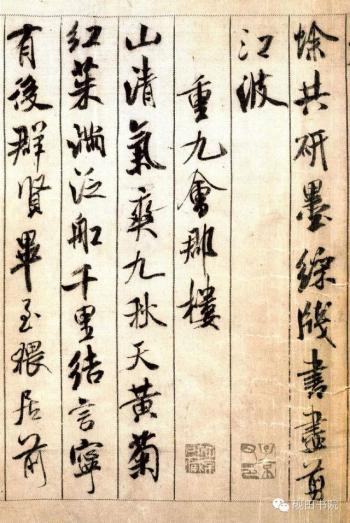 蜍共研墨綵牋書盡剪
江波
重九會郡樓
山清氣爽九秋天黃菊
紅茱滿泛船千里結言寧
有後群賢畢至猥居前
砚田书院